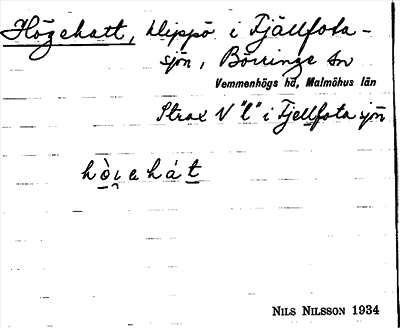 Högehatt, klippö i Fjällfota-
sjön, Börringe sn
Vemmenhögs hd, Malmöhus län
Strax V "l" i Fjellfota sjön
hò̱i̯ehát̠
NILS NILSSON 1934